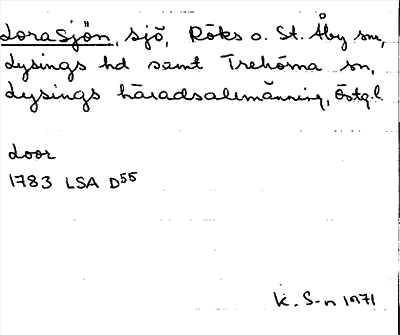 Lorasjön, sjö, Röks o. St. Åby snr,
Lysings hd samt Trehörna sn,
Lysings häradsallmänning, Östg.l.
Loor
1783 LSA D55
K. S-n 1971